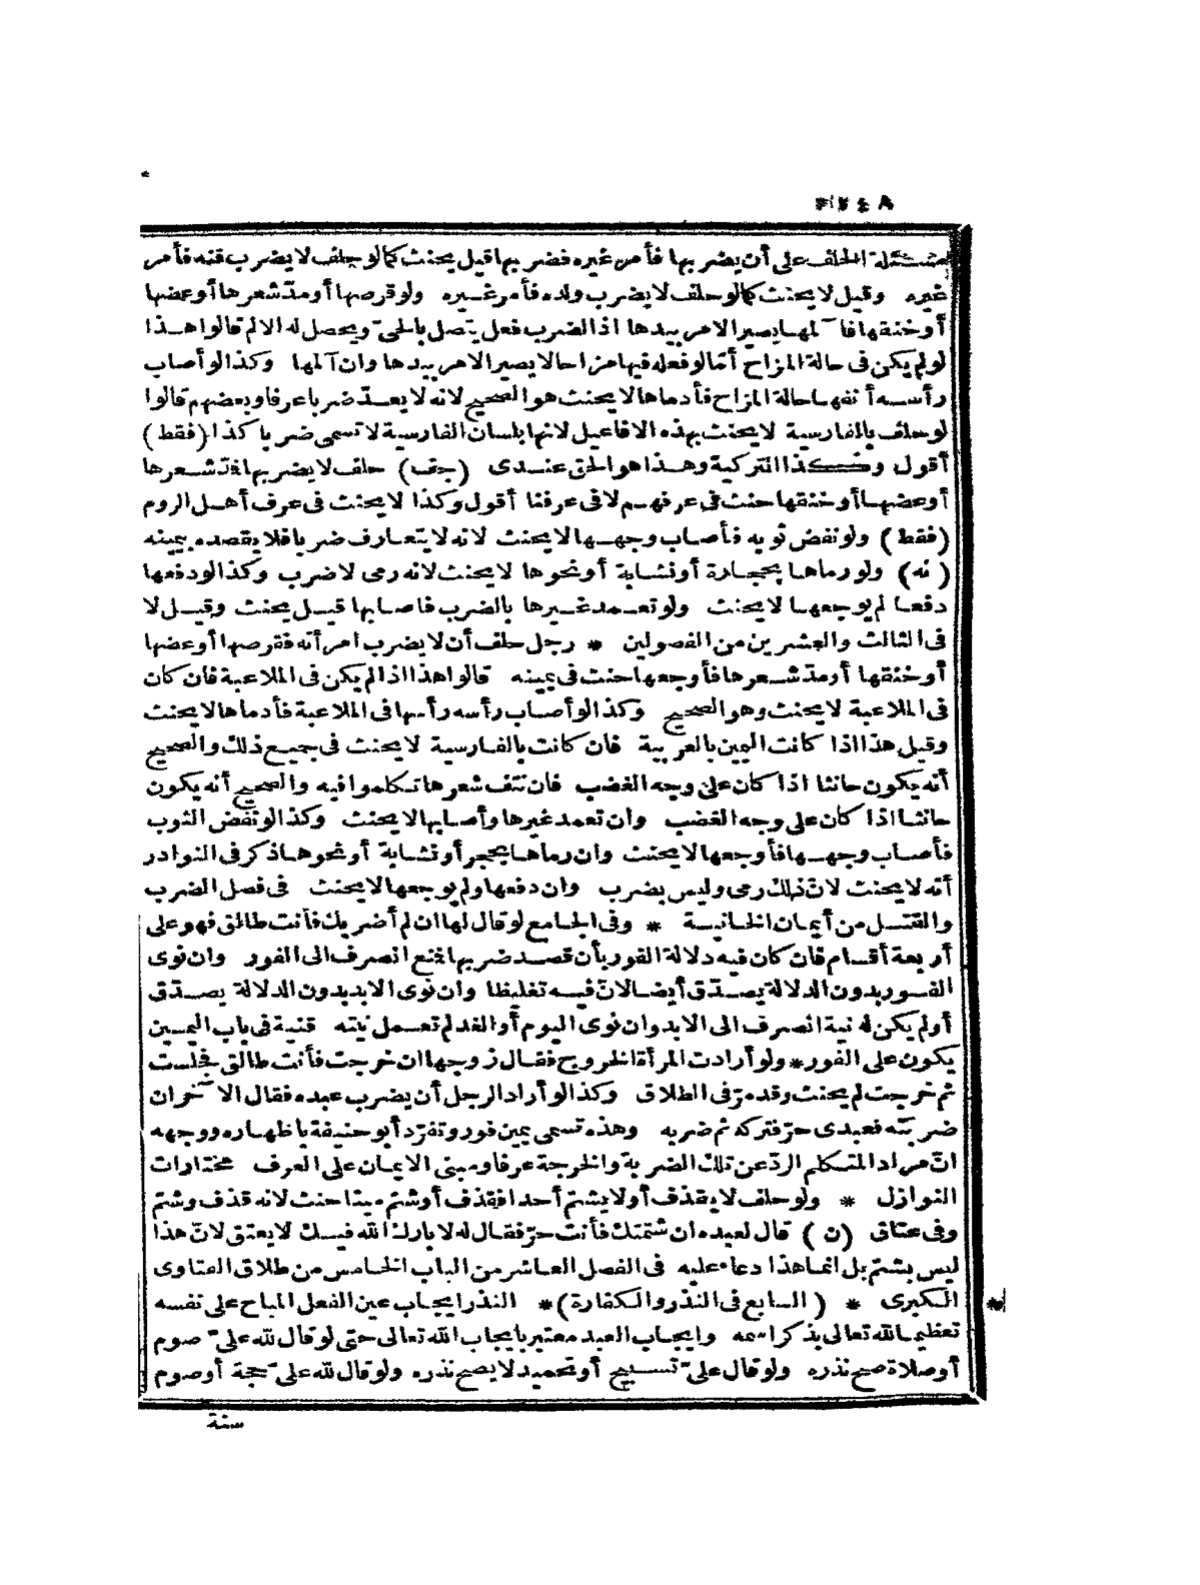 مسئلة الحلف على أن يضربها فأمر غيره فضربها قيل يحنث كما لو حلف لا يضرب قنه فأمر
غيره وقيل لا يحنث كما لو حلف لا يضرب ولده فأمر غيره ولو قرصها أو مدّ شعرها أو عضها
أو خنقها فآلمها يصير الامر بيدها اذ الضرب فعل يتصل بالحىّ ويحصل له الالم قالوا هذا
لو لم يكن فى حالة المزاح أمّا لو فعله فيها مزاحا لا يصير الامر بيدها وان آلمها وكذا لو أصاب
رأسه أنفها حالة المزاح فأدماها لا يحنث هو الصحيح لانه لا يعدّ ضربا عرفا وبعضهم قالوا
لو حلف بالفارسية لا يحنث بهذه الافاعيل لانها بلسان الفارسية لا تسمى ضربا كذا (فقط)
أقول وكذا التركية وهذا هو الحق عندى (جف) حلف لا يضربها فدّ شعرها
أو عضها أو خنقها حنث فى عرفهم لا فى عرفنا أقول وكذا لا يحنث فى عرف أهل الروم
(فقط) ولو نفض ثوبه فأصاب وجهها لا يحنث لانه لا يتعارف ضربا فلا يقصده بيمينه
(نه) ولو رماها بحجارة أو نشابة أو نحوها لا يحنث لانه رمى لا ضرب وكذا لو دفعها
دفعا لم يوجعها لا يحنث ولو تعمد غيرها بالضرب فاصابها قيل يحنث وقيل لا
فى الثالث والعشرين من الفصولين * رجل حلف أن لا يضرب امرأته فقرصها أو عضها
أو خنقها أو مدّ شعرها فأوجعها حنث فى يمينه قالوا هذا اذا لم يكن فى الملاعبة فان كان
فى الملاعبة لا يحنث وهو الصحيح وكذا لو أصاب رأسه رأسها فى الملاعبة فأدماها لا يحنث
وقيل هذا اذا كانت اليمين بالعربية فان كانت بالفارسية لا يحنث فى جميع ذلك والصحيح
أنه يكون حانثا اذا كان على وجه الغضب فان نتف شعرها تكلموا فيه والصحيح أنه يكون
حانثا اذا كان على وجه الغضب وان تعمد غيرها وأصابها لا يحنث وكذا لو نفض الثوب
فأصاب وجهها فأوجعها لا يحنث وان رماها بحجر أو نشابة أو نحوها ذكر فى النوادر
أنه لا يحنث لانّ ذلك رمى وليس بضرب وان دفعها ولم يوجعها لا يحنث فى فصل الضرب
والقتل من أيمان الخانية * وفى الجامع لو قال لها ان لم أضربك فأنت طالق فهو على
أربعة أقسام فان كان فيه دلالة الفور بأن قصد ضربها فنع انصرف الى الفور وان نوى
الفور بدون الدلالة يصدّق أيضا لانّ فيه تغليظا وان نوى الابد بدون الدلالة يصدّق
أو لم يكن له نية انصرف الى الابد وان نوى اليوم أو الغد لم تعمل نيته قنية فى باب اليمين
يكون على الفور * ولو أرادت المرأة الخروج فقال زوجها ان خرجت فأنت طالق فجلست
ثم خرجت لم يحنث وقد مرّ فى الطلاق وكذا لو أراد الرجل أن يضرب عبده فقال الآخر ان
ضربته فعبدى حرّ فتركه ثم ضربه وهذه تسمى يمين فور وتفرّد أبو حنيفة باظهاره ووجهه
انّ مراد المتكلم الردّ عن تلك الضربة والخرجة عرفا ومبنى الايمان على العرف مختارات
النوازل * ولو حلف لا يقذف أو لا يشتم أحدا فقذف أو شتم ميتا حنث لانه قذف وشتم
وفى عتاق (ن) قال لعبده ان شتمتك فأنت حرّ فقال له لا بارك الله فيك لا يعتق لانّ هذا
ليس بشتم بل انما هذا دعاء عليه فى الفصل العاشر من الباب الخامس من طلاق الفتاوى
الكبرى * (السابع فى النذر والكفارة) * النذر ايجاب عين الفعل المباح على نفسه
تعظيما لله تعالى بذكر اسمه وايجاب العبد معتبر بايجاب الله تعالى حتى لو قال لله علىّ صوم
أو صلاة صح نذره ولو قال علىّ تسبيح أو تحميد لا يصح نذره ولو قال لله علىّ حجة أو صوم
سنة